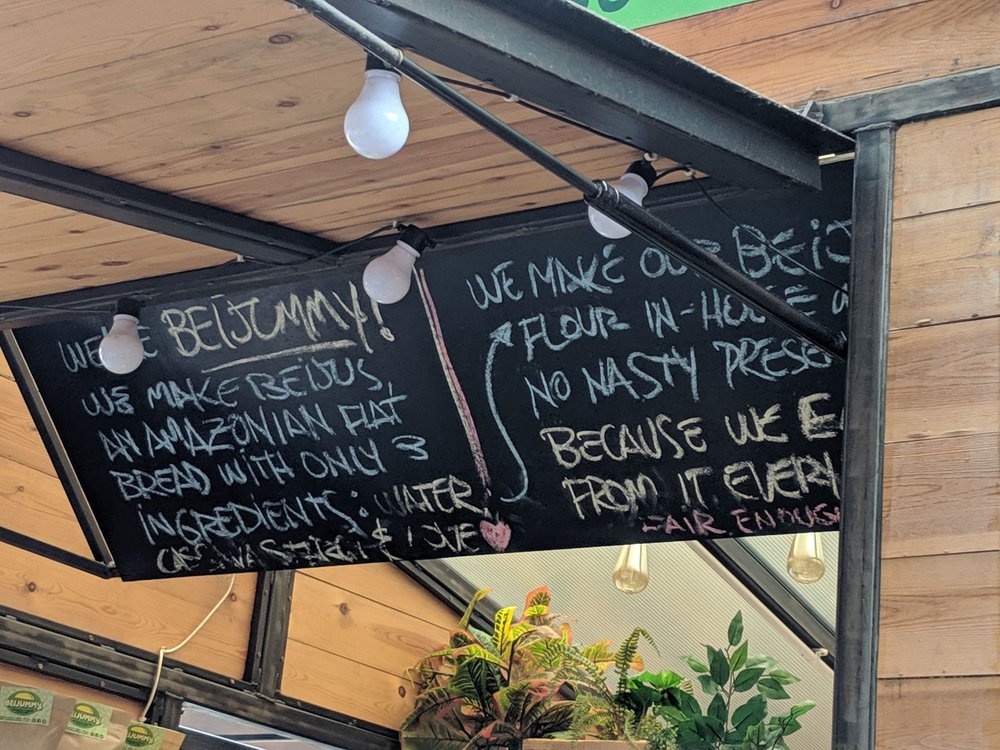 BEIJUMMY!
WE MAKE BEIJUS,
AN AMAZONIAN FLAT
BREAD WITH ONLY 3
INGREDIENTS: WATER,
& LOVE
WE MAKE OUR
FLOUR IN-HOUSE
NO NASTY
BECAUSE WE
FROM IT EVERY
FAIR ENOUGH
BEIJUMMY
BEIJUMMY
BEIJUMMY